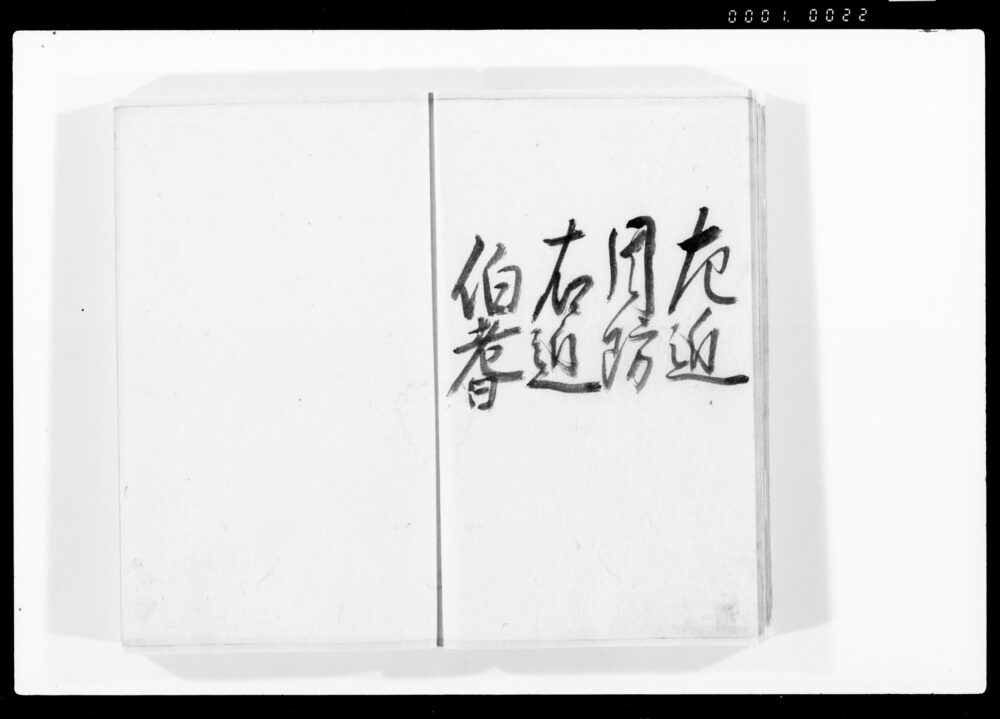 0001. 0022
左近
周防
右近
伯耆